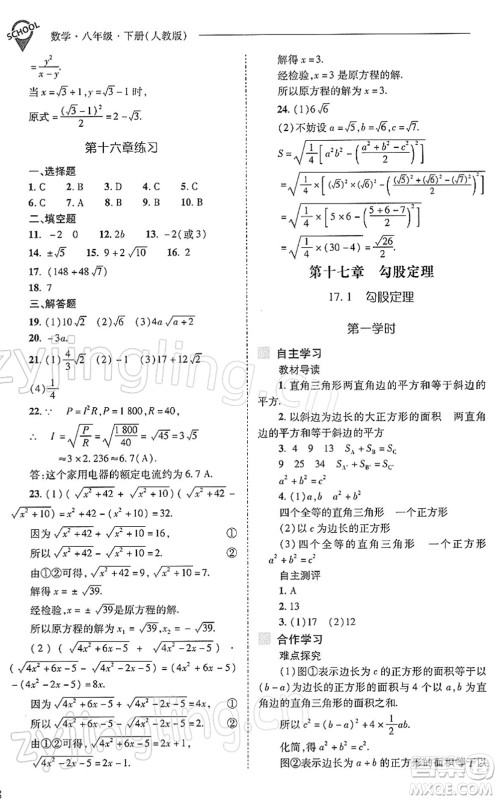 SCHOOL
数学·八年级·下册(人教版)
= y²/(x-y)
当 x=√3+1,y=√3-1 时,
原式=(√3-1)²/2=2-√3
第十六章练习
一、选择题
1. C 2. B 3. D 4. C 5. B
6. C 7. C 8. D 9. A 10. A
二、填空题
11. -2 0 12. 4 13. -2(或3)
14. ±√5 15. 9+2√10 16. 2
17. (148+48√7)
18. 7
三、解答题
19. (1)10√2
20. -3a.
(4)1/4
22. ∵ P=I²R,P=1 800,R=40,
∴ I=√(P/R)=√(1 800/40)=√45=3√5
≈3×2.236≈6.7(A).
答:这个家用电器的额定电流约为6.7 A.
23. (1)(√(x²+42)+√(x²+10))(√(x²+42)-
√(x²+10))=32,
因为√(x²+42)+√(x²+10)=16, ①
所以√(x²+42)-√(x²+10)=2. ②
由①②可得,√(x²+42)=9,√(x²+10)=7,
解得 x=±√39.
经检验,x=±√39是原方程的解.
所以原方程的解为 x₁=√39,x₂=-√39.
解得 x=3.
经检验,x=3是原方程的解.
所以原方程的解为 x=3.
24. (1)6√6
(2)不妨设 a=√5,b=√6,c=√7,
S=√(1/4[a²b²-((a²+b²-c²)/2)²])
=√(1/4×[(√5)²(√6)²-(((√5)²+(√6)²-(√7)²)/2)²])
=√(1/4×[5×6-((5+6-7)/2)²])
=√(1/4×(30-4))=√26/2.
第十七章 勾股定理
17.1 勾股定理
第一学时
自主学习
教材导读
1. 直角三角形两直角边的平方和等于斜边的
平方.
2. 以斜边为边长的大正方形的面积 两直角
边的平方和等于斜边的平方
3. 4 9 13 S_A+S_B=S_C
9 25 34 S_A'+S_B'=S_C'
a²+b²=c²
4. (1)c²
四个全等的直角三角形 一个正方形
(2)以c为边长的正方形
四个全等的直角三角形 一个正方形
a²+b²=c²
自主测评
1. A
2. 13
3. (1)17 (2)12
合作学习
难点探究
(1)图①表示边长为c的正方形的面积等于以
(b-a)为边长的正方形的面积与4个以a,b为直角
边的直角三角形的面积之和,
即c²=(b-a)²+4×1/2ab,
化简,得c²=a²+b².
图②表示边长为a+b的正方形的面积等于以